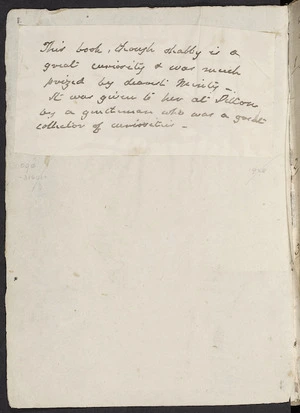 This book, though shabby is a
great curiosity & was much
prized by dearest Minity -
It was given to her at Ditton
by a gentleman who was a great
collector of curiosities -